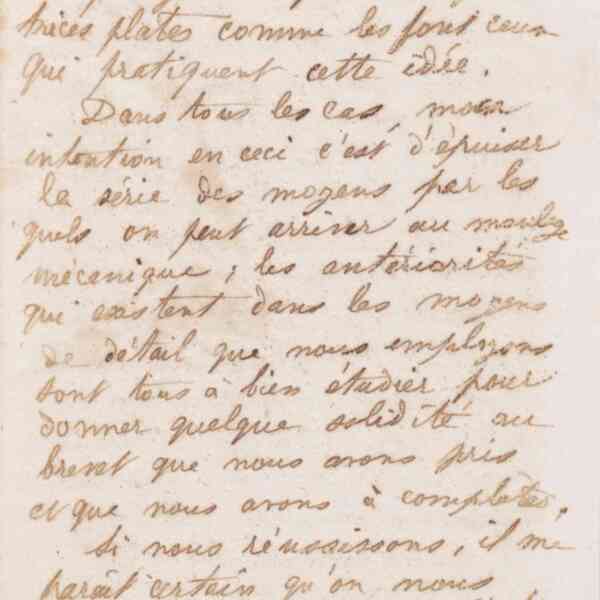 trices plates comme les font ceux
qui pratiquent cette idée.
Dans tous les cas, mon
intention en ceci c'est d'épuiser
la série des moyens par les
quels on peut arriver au moulage
mécanique ; les antériorités
qui existent dans les moyens
de détail que nous employons
sont tous à bien étudier pour
donner quelque solidité au
brevet que nous avons pris
et que nous avons à compléter.
Si nous réussissons, il me
paraît certain qu'on nous